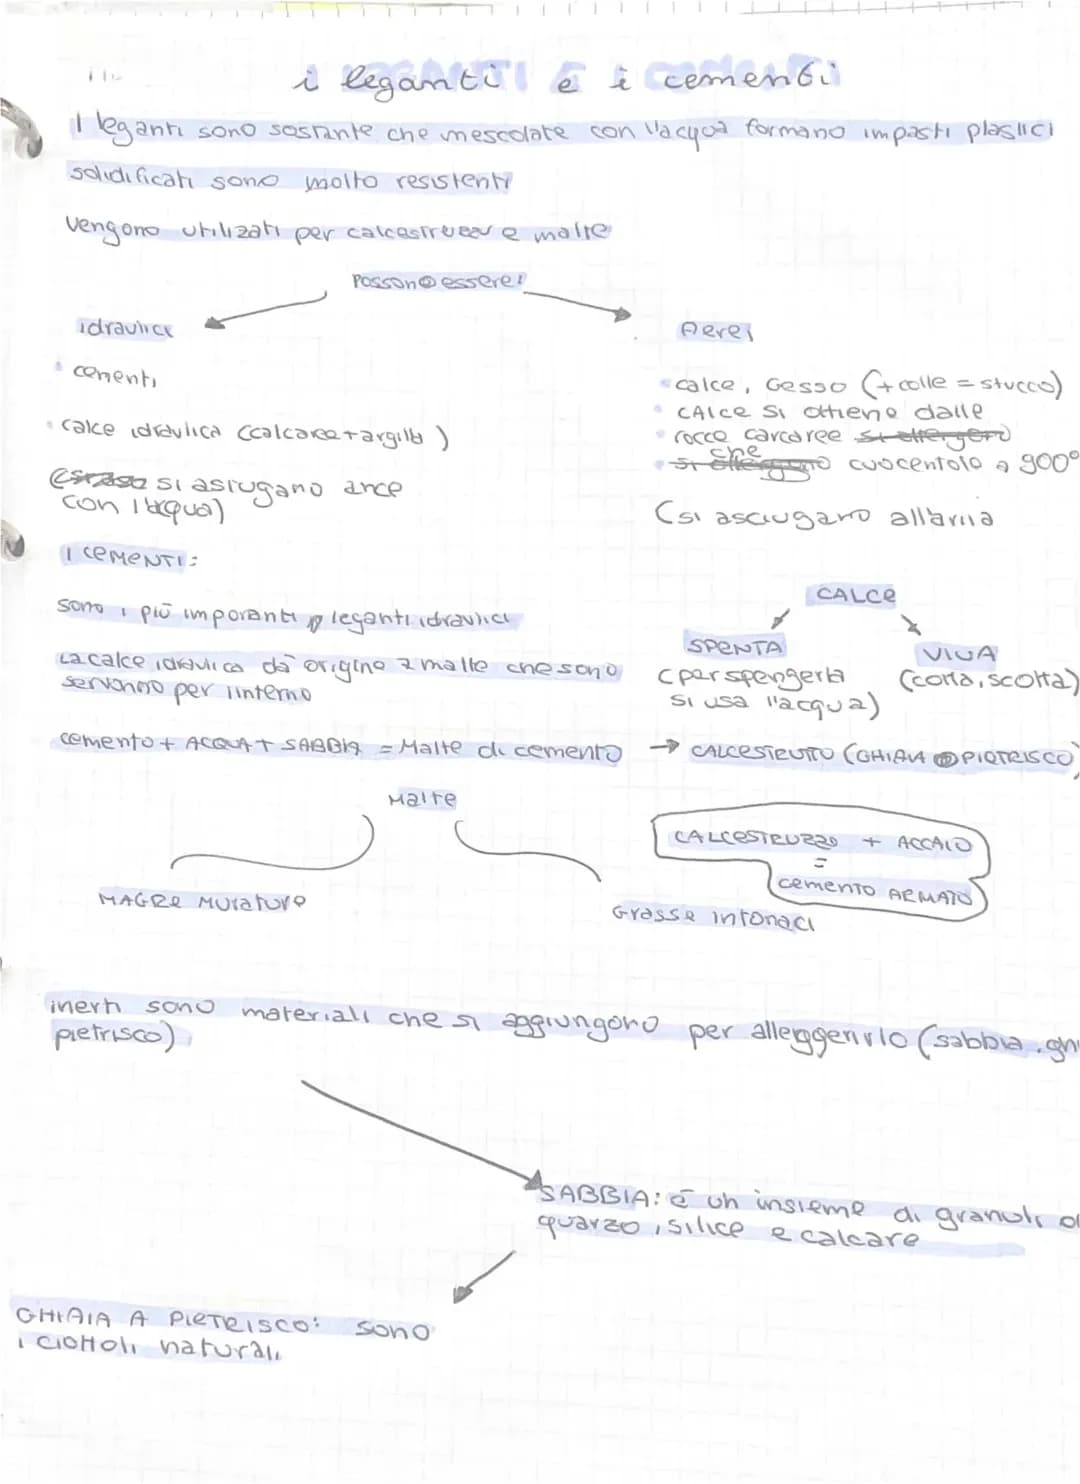 i leganti e i cementi
I leganti sono sostante che mescolate con l'acqua formano impasti plastici
solidificati sono molto resistenti
vengono utilizzati per calcestruzzi e malte
Possono essere:
idraulici
Aerei
cementi
calce idraulica (calcare + argilla)
si asciugano ance
con l'acqua)
calce, Gesso (+ colle = stucco)
CAlce si ottiene dalle
rocce carcaree
che
cuocentolo a 900°
(si asciugano all'ariia
I CEMENTI:
sono i più imporanti leganti idraulici
La calce idraulica dà origine a malte che sono
servonno per linterno
CALCE
SPENTA
(per spengerla
si usa l'acqua)
VIVA
(cotta, sciolta)
cemento + ACQUA + SABBIA = Malte di cemento
→ CALCESTRUTTO (GHIAIA O PIETRISCO)
Malte
MAGRE Murature
Grasse intonaci
CALCESTRUZZO + ACCAIO
=
cemento ARMATO
inerti sono materiali che si aggiungono per alleggerirlo (sabbia, ghi
pietrisco)
SABBIA: è un insieme di granuli di
quarzo, silice e calcare
GHIAIA A PIETRISCO: sono
i ciottoli naturali